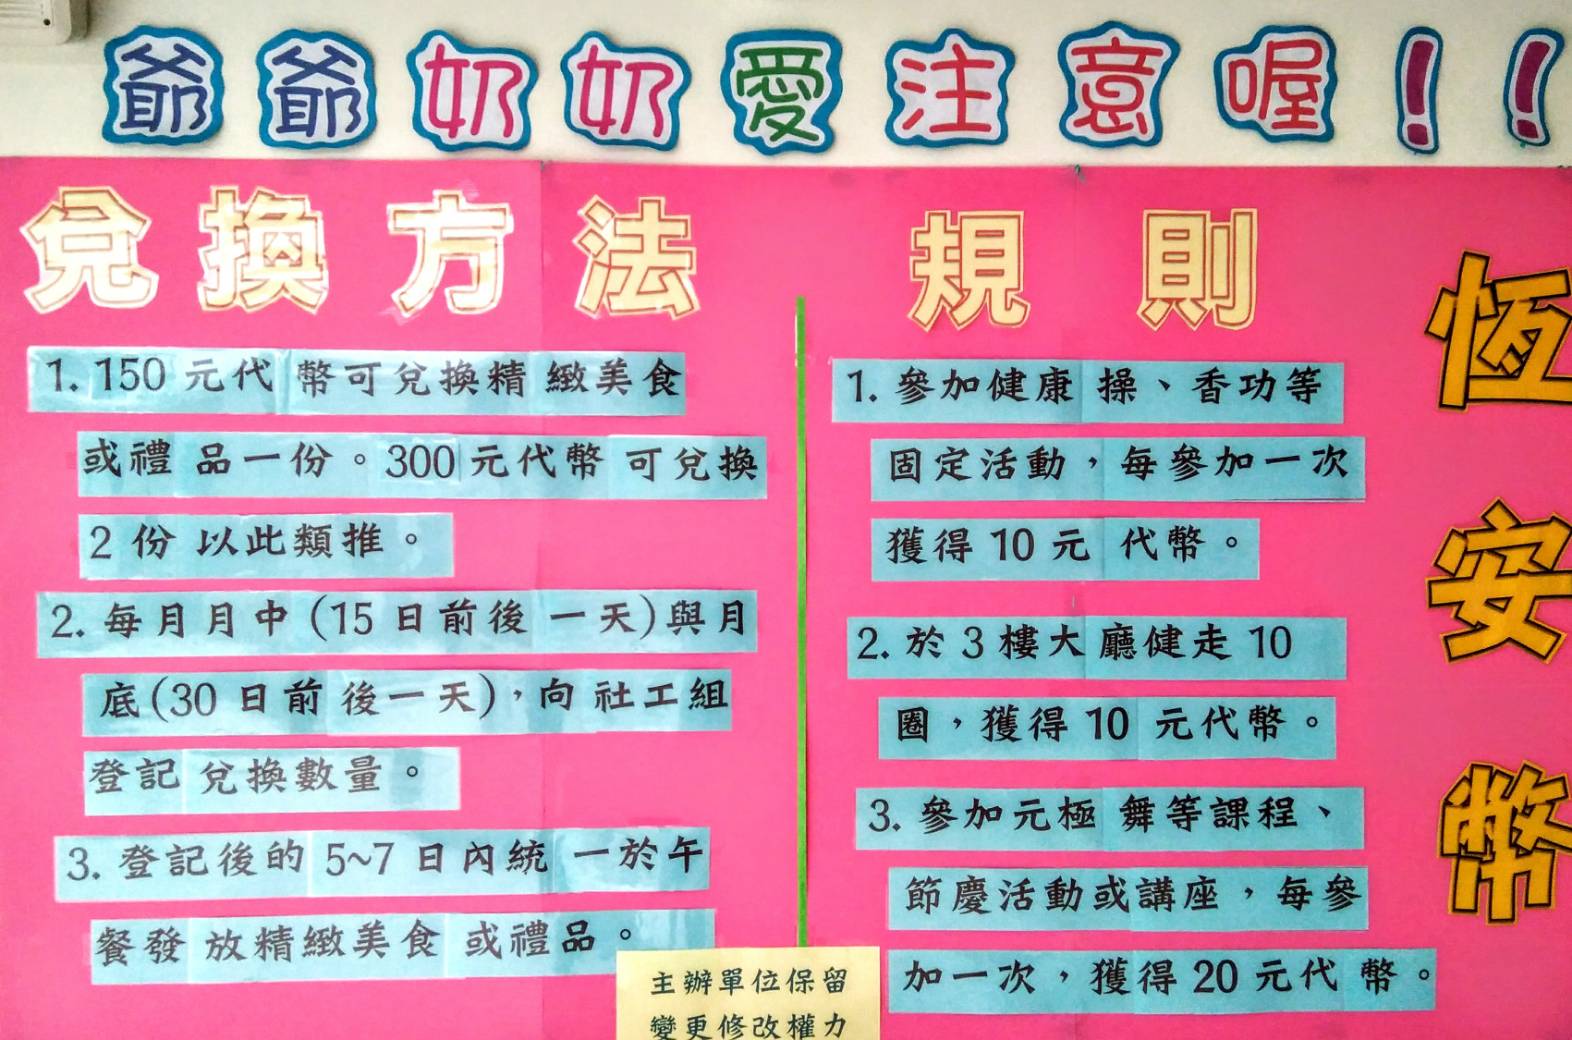 爺爺奶奶愛注意喔！！
兌換方法
1. 150 元代幣可兌換精緻美食
或禮品一份。300元代幣可兌換
2 份以此類推。
2. 每月月中(15日前後一天)與月
底(30日前後一天)，向社工組
登記兌換數量。
3. 登記後的5~7日內統一於午
餐發放精緻美食或禮品。
規則
1. 參加健康操、香功等
固定活動，每參加一次
獲得10元代幣。
2. 於3樓大廳健走10
圈，獲得10元代幣。
3. 參加元極舞等課程、
節慶活動或講座，每參
加一次，獲得20元代幣。
恆安幣
主辦單位保留
變更修改權力